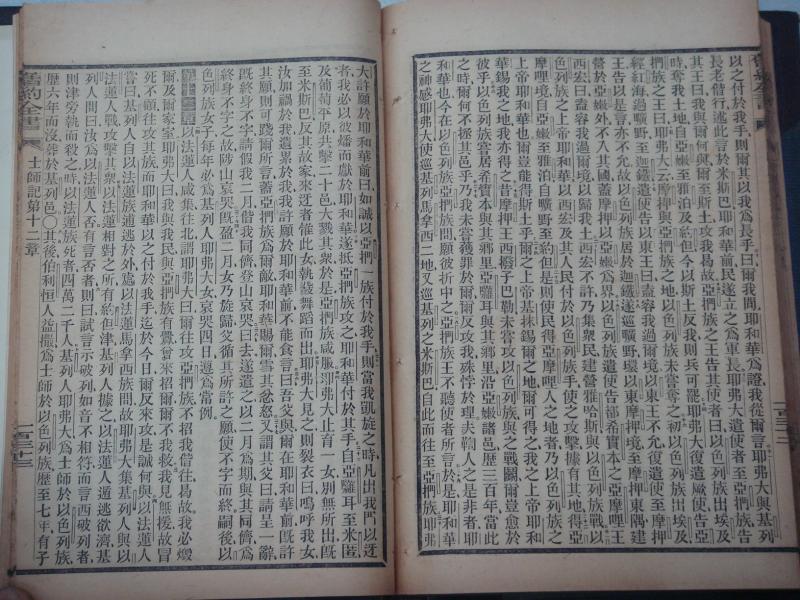 以之付於我手則爾其以我爲長乎曰爾我間耶和華爲證我從爾言耶弗大與基列
長老偕行述此言於米斯巴耶和華前民遂立之爲軍長耶弗大遣使者至亞捫族告
王曰我與爾何與爾至斯土攻我曷故亞捫族之王告其使者曰以色列族出埃及
時奪我土地自亞嫩至雅泊及約但今以斯土反我則兵可罷耶弗大復遣厥使告亞
捫族之王曰耶弗大云摩押與亞捫族之地以色列族未嘗奪之初以色列族出埃及
經紅海過曠野至迦鐵遣使告以東王曰盍容我過爾境以東王不允復遣使至摩押
王告以是言亦不允故以色列族居於迦鐵遂巡曠野環以東摩押境至摩押東隅建
營於亞嫩外不入其國蓋摩押以亞嫩爲界以色列族遣使告部希實本之亞摩哩王
西宏曰盍容我過爾境以歸我土西宏不許乃集衆民建營雅哈斯與以色列族戰以
色列族之上帝耶和華以西宏及其人民付於以色列族手使之攻擊據有其地得亞
摩哩境自亞嫩至雅泊自曠野至約但是則使民得亞摩哩人之地者乃以色列族之
上帝耶和華也爾豈能得斯土乎爾之上帝基抹錫爾之地爾可得之我之上帝耶和
華錫我之地我亦得之昔摩押王西撥子巴勒未嘗攻以色列族與之戰鬬爾豈愈於
彼乎以色列族嘗居希實本與其鄉里亞囉耳與其鄉里沿亞嫩諸邑歷三百年當此
之時爾何不拯其邑乎我未嘗獲罪於爾爾反攻我殊悖於理夫鞫人之是非者耶
和華也今在以色列族與亞捫族間願彼折中之亞捫族王不聽使者所言於是耶和華
之神感耶弗大使巡基列馬拿西二地又巡基列之米斯巴自此而往至亞捫族耶弗
大許願於耶和華前曰如誠以亞捫一族付於我手則當我凱旋之時凡出我門以迓
者我必以彼燔而獻於耶和華遂抵亞捫族攻之耶和華付於其手自亞囉耳至米匿
及葡萄平原共擊二十邑大戮其衆於是亞捫族咸服耶弗大止育一女別無所出旣
至米斯巴反其故家來迓者惟此女執鼗舞蹈而出耶弗大見之則裂衣曰嗚呼我女
汝加禍於我遺累於我我許願於耶和華前不能食言曰吾父與爾在耶和華前旣許
其願則可踐爾所言蓋亞捫族爲爾敵耶和華賜爾雪其忿怒又謂其父曰請至一辭
旣終身不字請假我二月偕我同儕登山哀哭曰去遂遣之以二月爲期與其同儕爲
終身不字之故陟山哀哭旣盈二月女乃旋歸父循其所許之願使不字而終嗣後以
色列族女子每年必爲基列人耶弗大女哀哭四日遐爲常例
以法蓮人咸集往北謂耶弗大曰爾往攻亞捫族不招我偕往曷故我必燬
爾及爾家室耶弗大曰我與我民與亞捫族有釁嘗來招爾爾不我救我見無援故冒
死不顧往攻其族而耶和華以之付於我手迄於今日爾反來攻是誠何與以法蓮人
嘗曰基列人自以法蓮族逋逃於外爲以法蓮馬拿西族間故耶弗大集基列人與以
法蓮人戰攻擊其衆以法蓮相對之所有約但津基列人據之以法蓮人遁逃欲濟基
列人問曰汝爲以法蓮人否有言否者則曰試言示破列如音不相符而言西破列者
則津旁執而殺之時以法蓮族死者四萬二千人基列人耶弗大爲士師於以色列族
歷六年而沒葬於基列邑〇其後伯利恒人益撮爲士師於以色列族歷至七年有子
舊約全書
士師記第十二章